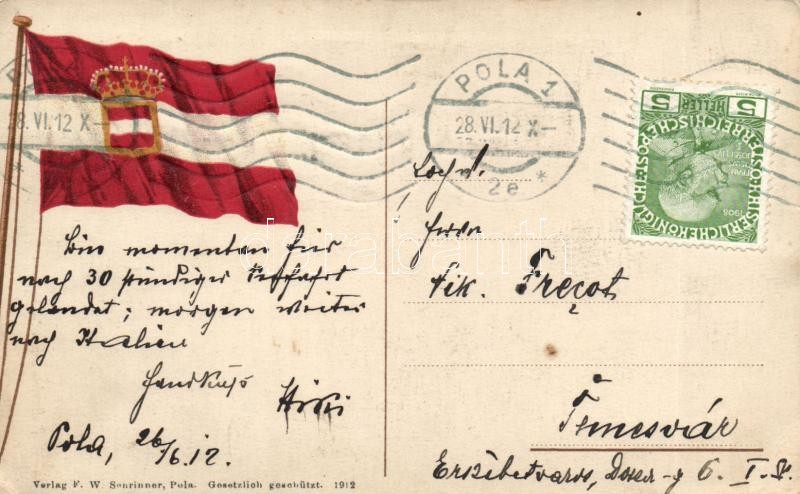 POLA 1
28.VI.12 X–
2e
*
5 HELLER 5
KAISERLICHE KÖNIGLICHE ÖSTERREICHISCHE POST
1908
Bin momentan hier
nach 30 stündiger Seefahrt
gelandet; morgen weiter
nach Italien
Handkuß
Pola, 26/6.12.
Hochw.
Herrn
Nik. Frecot
Temesvár
Erzsébetvaros, Dozsa-g 6. I. St.
Verlag F. W. Schrinner, Pola. Gesetzlich geschützt. 1912